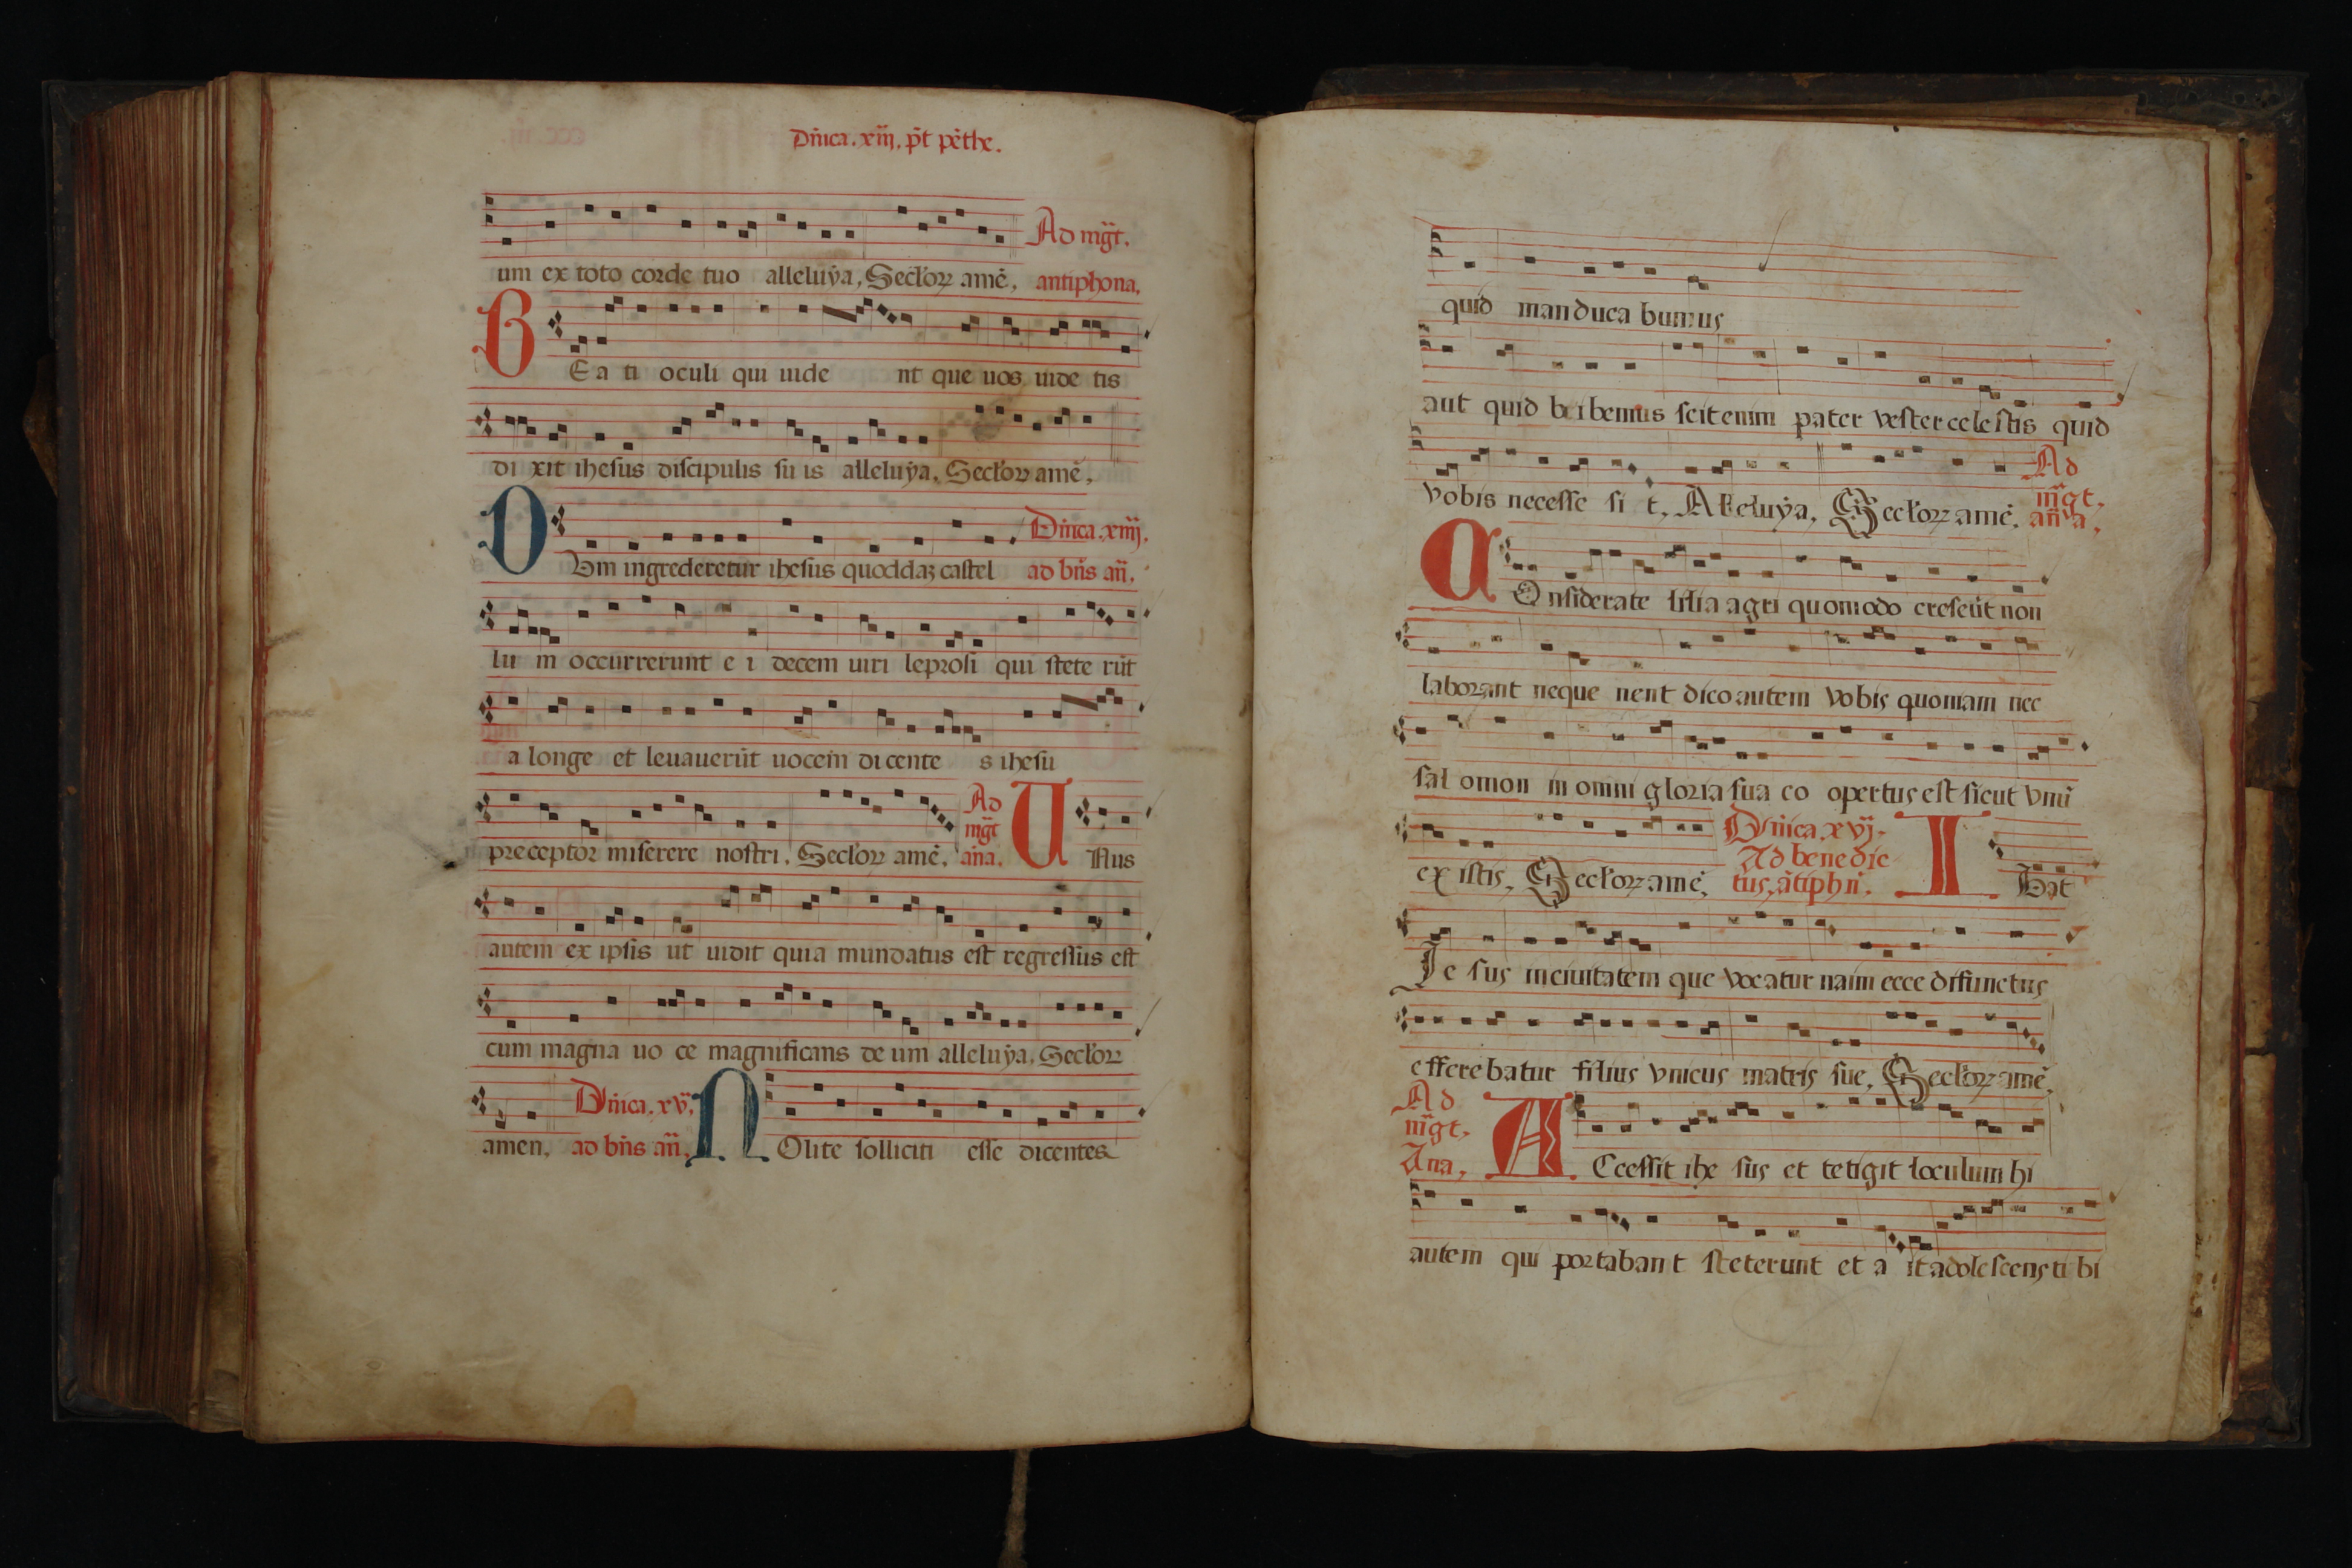 Dñica. xiij. p̃t pẽthe.
um ex toto corde tuo alleluẏa, Secľoꝝ amē, Ad mg̃t. antiphona,
BEa ti oculi qui uide nt que uos uide tis
di xit ihesus discipulis su is alleluẏa, Secľoꝝ amē,
DUm ingrederetur ihesus quoddaȝ castel Dñica. xiiij. ad bñs añ.
lu m occurrerunt e i decem uiri leprosi qui stete rūt
a longe et leuauerūt uocem di cente s ihesu
preceptor miserere nostri, Secľoꝝ amē, Ad mg̃t añа. UNus
autem ex ipsis ut uidit quia mundatus est regressus est
cum magna uo ce magnificans de um alleluẏa, Secľoꝝ
amen, Dñica. xv. ad bñs añ. NOlite solliciti esse dicentes
quid manduca bumus
aut quid b i bemus scit enim pater vester cele stis quid
vobis necesse si t, Alleluẏa, Secľoꝝ amē. Ad mg̃t. añа,
COnsiderate lilia agri quomodo crescūt non
laborant neque nent dico autem vobis quoniam nec
sal omon in omni gloria sua co opertus est sicut vnū
ex istis, Secľoꝝ amē, Dñica. xvj. Ad benedic tus, ãtiphñ. IBat
Ie sus in ciuitatem que vocatur naim ecce difunctus
efferebatur filius vnicus matris sue, Secľoꝝ amē,
Ad mg̃t. Ana, ACcessit ihe sus et tetigit loculum hi
autem qui portabant steterunt et a it adolescens ti bi